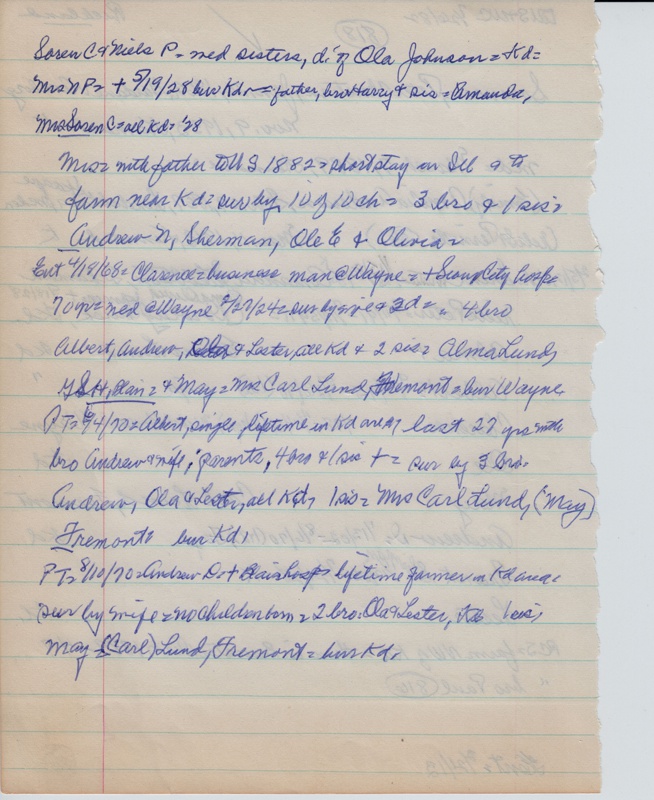 Soren C & Niels P = med sisters, d. of Ola Johnson = Kd =
Mrs N P = + 5/19/28 bur Kd = father, bro Harry & sis = Amanda,
Mrs Soren C = all Kd = '28
Mrs = with father to U S 1882 = short stay in Ill a to
farm near Kd = sur by 10 of 10 ch = 3 bro & 1 sis =
Andrew N, Sherman, Ole E & Olivia =
Ent 4/19/68 = Clarence = business man @ Wayne = + Sioux City hosp =
70 yr = med @ Wayne /27/24 = sur by wife & 2 d = " 4 bro
Albert, Andrew, Ola & Lester, all Kd & 2 sis = Alma Lund,
Blair = & May = Mrs Carl Lund, Fremont = bur Wayne
PT = 4/70 = Albert, single, lifetime in Kd area last 27 yrs with
bro Andrew & wife, parents, 4 bro & 1 sis + = sur by 3 bro =
Andrew, Ola & Lester, all Kd, 1 sis = Mrs Carl Lund, (May)
Fremont = bur Kd,
PT = 8/10/70 = Andrew D. + Blair hosp = lifetime farmer in Kd area =
sur by wife = no children born = 2 bro: Ola & Lester, Kd 1 sis,
May = (Carl) Lund, Fremont = bur Kd,